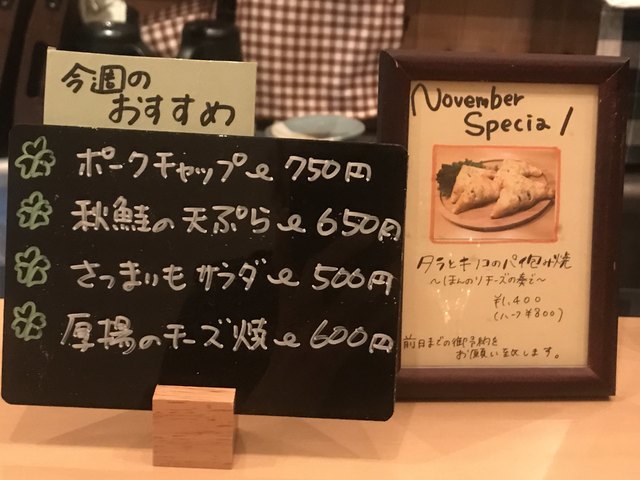 今週の
おすすめ
ポークチャップ 750円
秋鮭の天ぷら 650円
さつまいもサラダ 500円
厚揚のチーズ焼 600円
November
Special
タラとキノコのパイ包み焼
～ほんのりチーズの奏で～
¥1,400
(ハーフ ¥800)
前日までの御予約を
お願い致します。